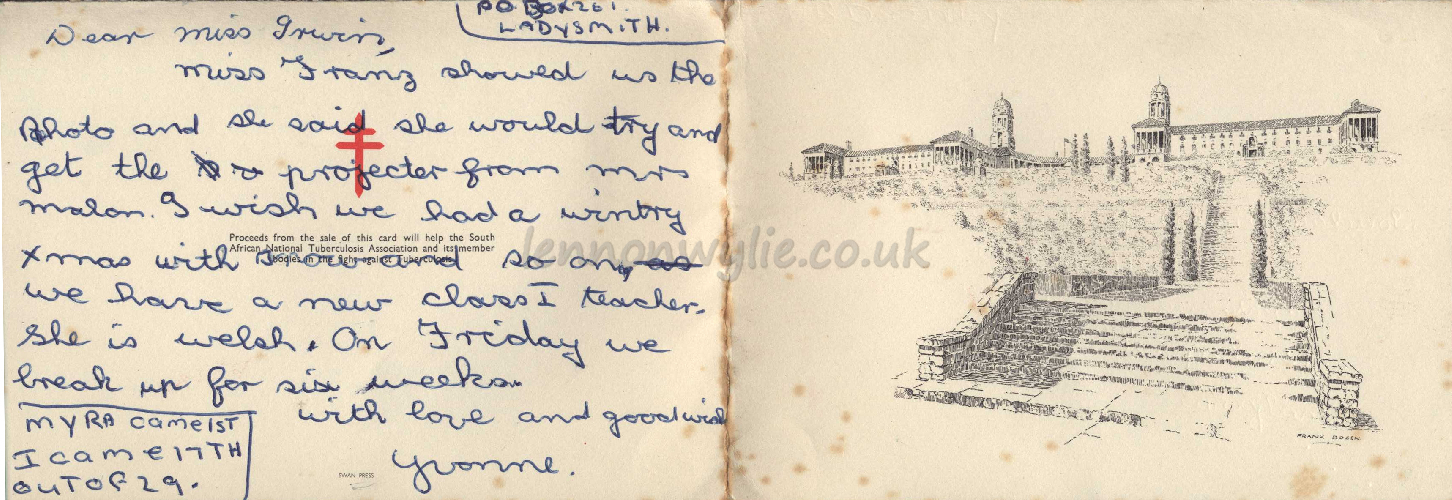 PO BOX 261.
LADYSMITH.
Dear miss Irwin,
miss Franz showed us the
photo and she said she would try and
get the projecter from mrs
malon. I wish we had a wintry
Proceeds from the sale of this card will help the South
African National Tuberculosis Association and its member
bodies in the fight against Tuberculosis.
Xmas with snow and so on,
we have a new class I teacher.
she is welsh. On Friday we
break up for six weeks.
with love and good wish
Yvonne.
MYRA CAME 1ST
I CAME 17TH
OUT OF 29.
SWAN PRESS
lennonwylie.co.uk
FRANK